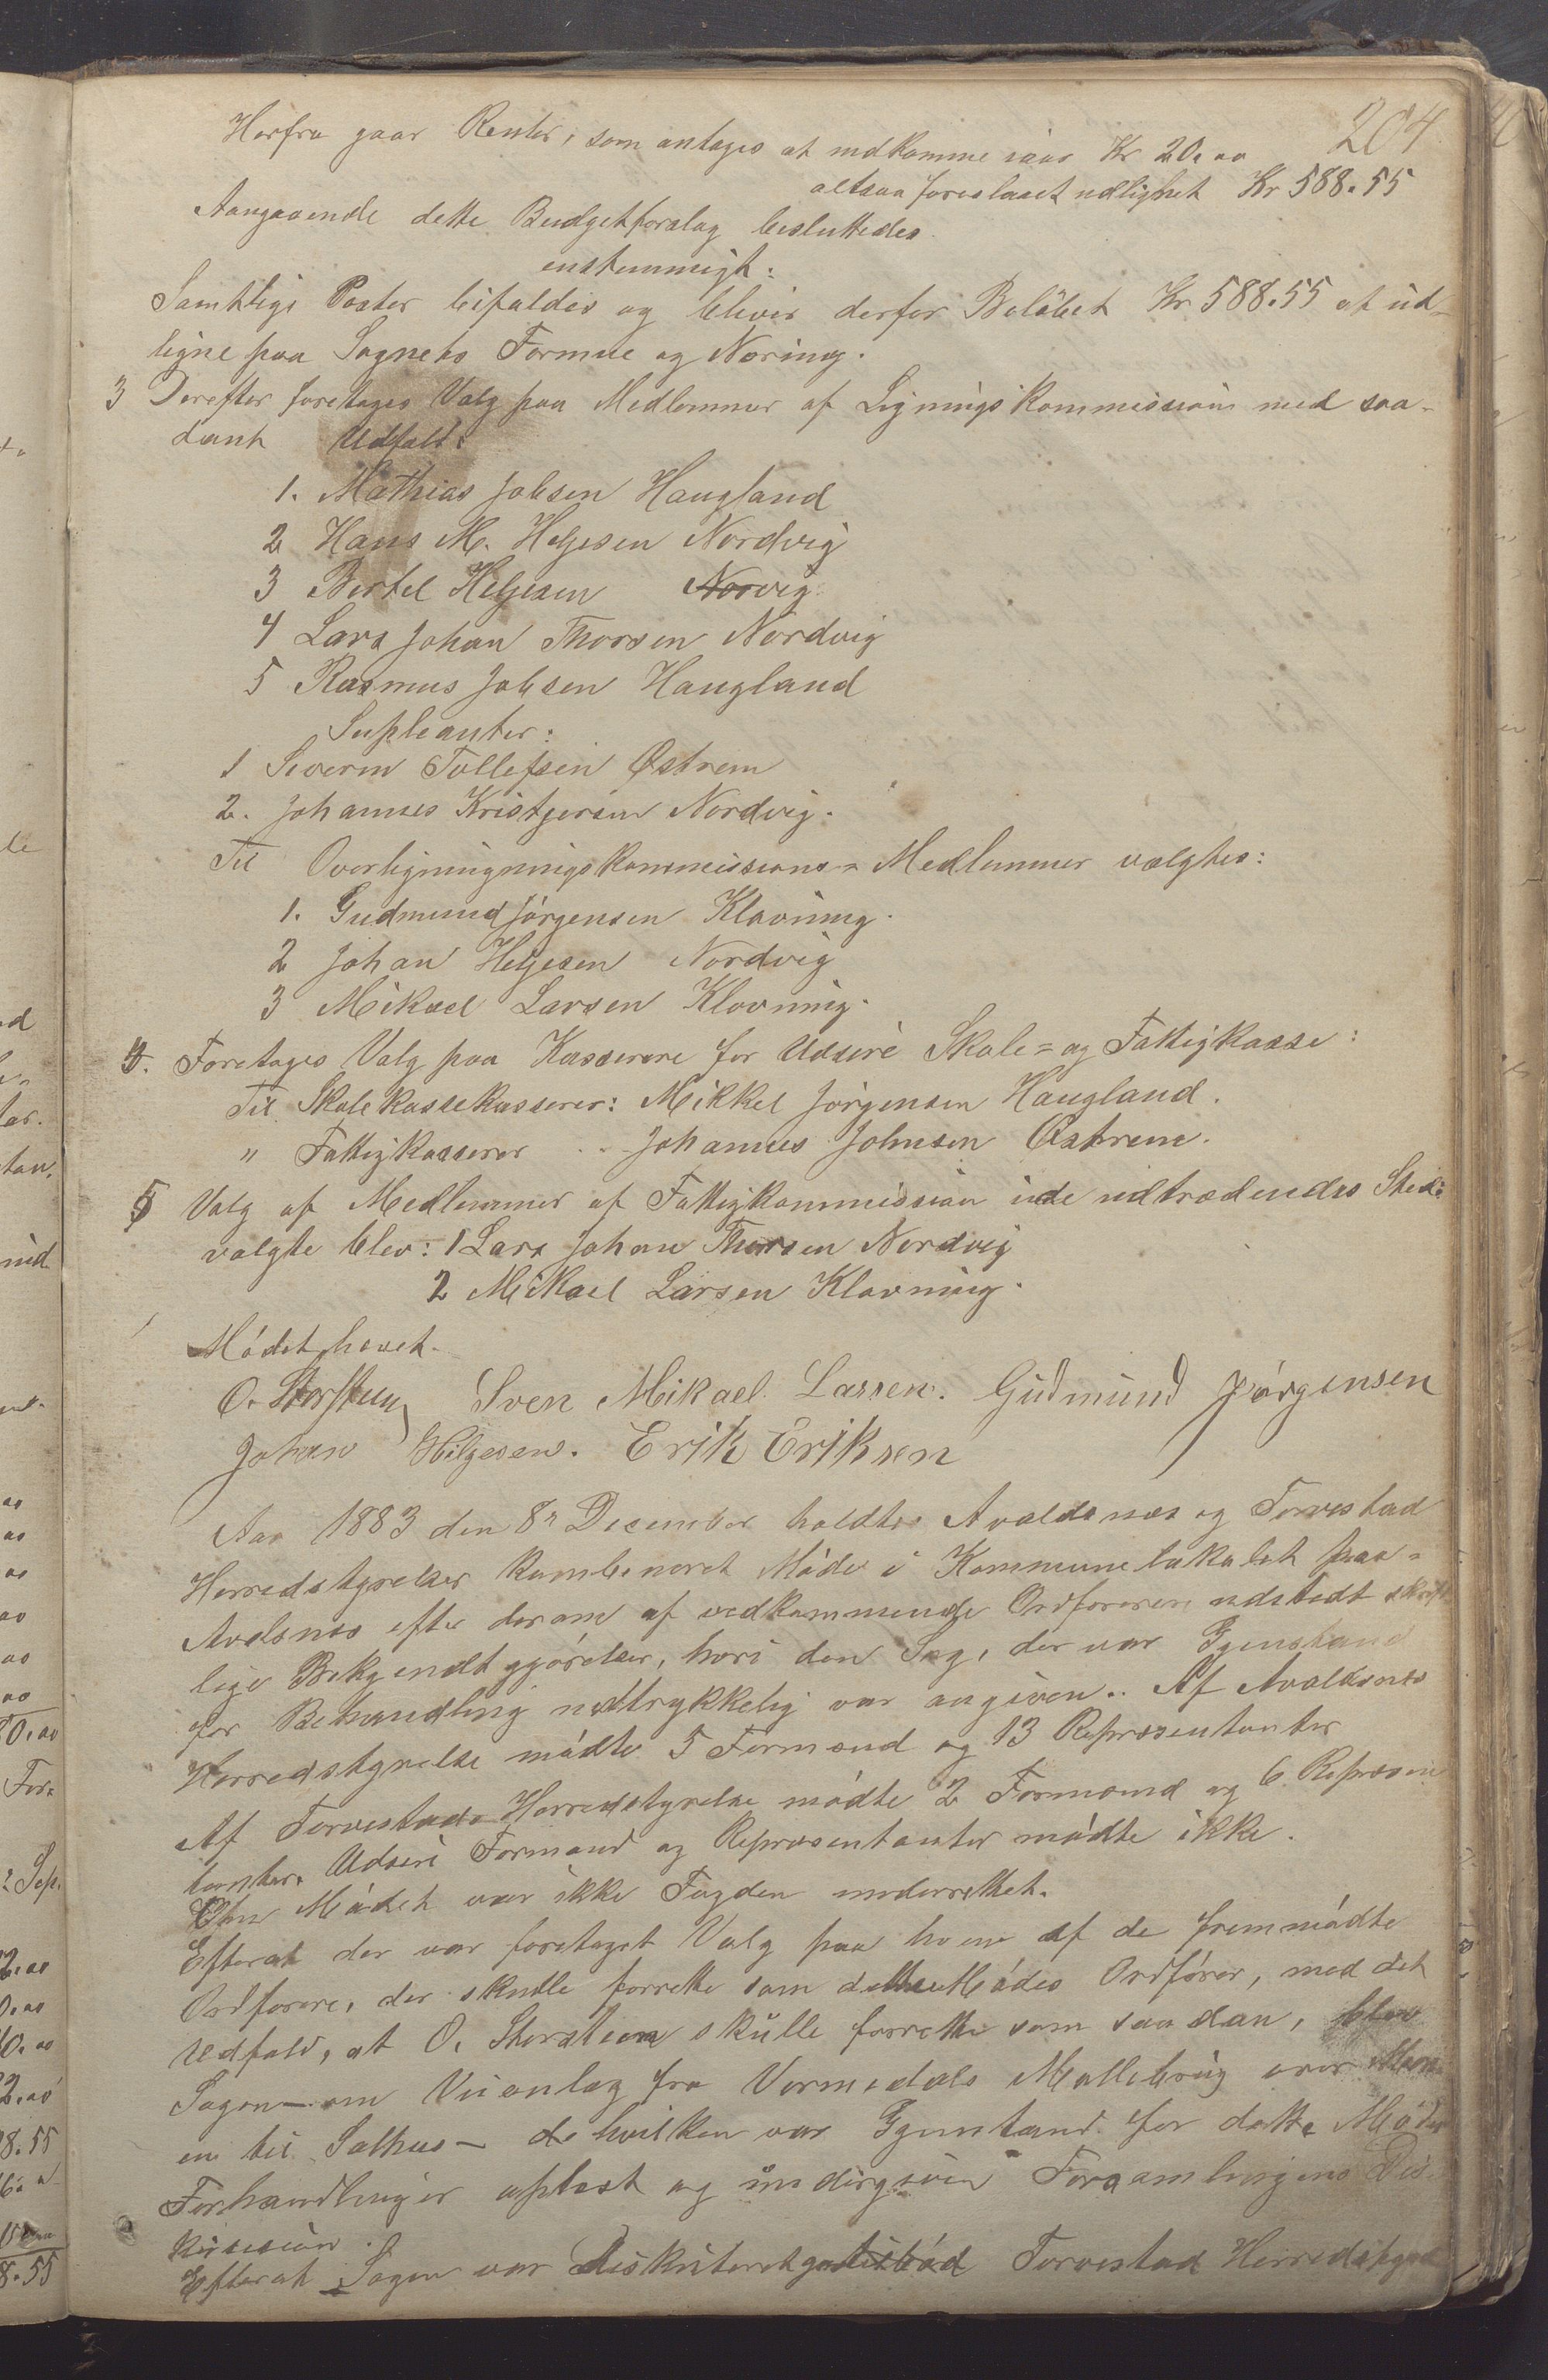 204
Herfra gaar Renter, som antages at indkomme iaar Kr 20.00
altsaa foreslaaet udlignet Kr 588.55
Aangaaende dette Budgetforslag besluttedes
enstemmigt:
Samtlige Poster bifaldes og bliver derfor Beløbet Kr 588.55 at ud-
ligne paa Sognets Formue og Næring.
3 Derefter foretages Valg paa Medlemmer af Ligningskommission med saa-
dant Udfald:
1. Mathias Jobsen Haugland
2 Hans M. Helgesen Nordvig
3 Bertel Helgesen Norvig
4 Lars Johan Thorsen Nordvig
5 Rasmus Jobsen Haugland
Supleanter:
1 Severin Tollefsen Østrem
2. Johannes Kristjersen Nordvig.
Til Overligningningskommissions- Medlemmer valgtes:
1. Gudmund Jørgensen Klovning.
2 Johan Helgesen Nordvig
3 Mikael Larsen Klovning.
4. Foretages Valg paa Kasserere for Udsire Skole- og Fattigkasse:
Til Skolekassekasserer: Mikkel Jørgensen Haugland.
" Fattigkasserer .. Johannes Johnsen Østrem.
5 Valg af Medlemmer af Fattigkommission i de udtrædendes Sted:
valgte blev: 1 Lars Johan Thorsen Nordvig
2 Mikael Larsen Klovning.
Mødet hævet.
O. Storsteen Sven Mikael Larsen. Gudmund Jørgensen
Johan Helgesen. Erik Eriksen
Aar 1883 den 8n December holdtes Avaldsnes og Torvestad
Herredstyrelser kombineret Møde i Kommunelokalet paa-
Avelsnes efter derom af vedkommende Ordførere udstedt skrift
lige Bekjendtgjørelser, hvori den Sag, der var Gjenstand
for Behandling udtrykkelig var angiven.. Af Avaldsnes
Herredstyrelse mødte 5 Formænd og 13 Repræsentanter
Af Torvestads Herredstyrelse mødte 2 Formænd og 6 Repræsen
tanter. Udsire Formænd og Repræsentanter mødte ikke.
Om Mødet var ikke Fogden underrettet.
Efterat der var foretaget Valg paa hvem af de fremmødte
Ordførere, der skulle forrette som dette Mødes Ordfører, med det
Udfald, at O. Storsteen skulle forrette som saadan, blev
Sagen - om Veianlæg fra Vormedals Møllebrug over
en til Salhus - de hvilken var Gjenstand for dette Mødes
Forhandlinger oplæst og undergiven Forsamlingens Dis-
kussion.
Efterat Sagen var diskuteret Torvestad Herredstyrel